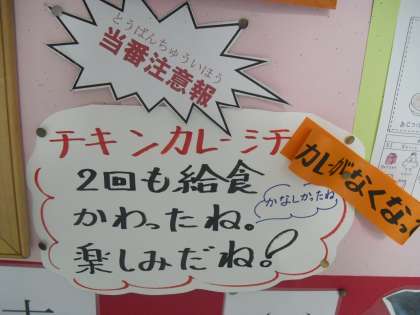 とうばんちゅういほう
当番注意報
チキンカレーシチ
カレーがなくなっ
2回も給食
かわったね。
かなしかったね
楽しみだね!